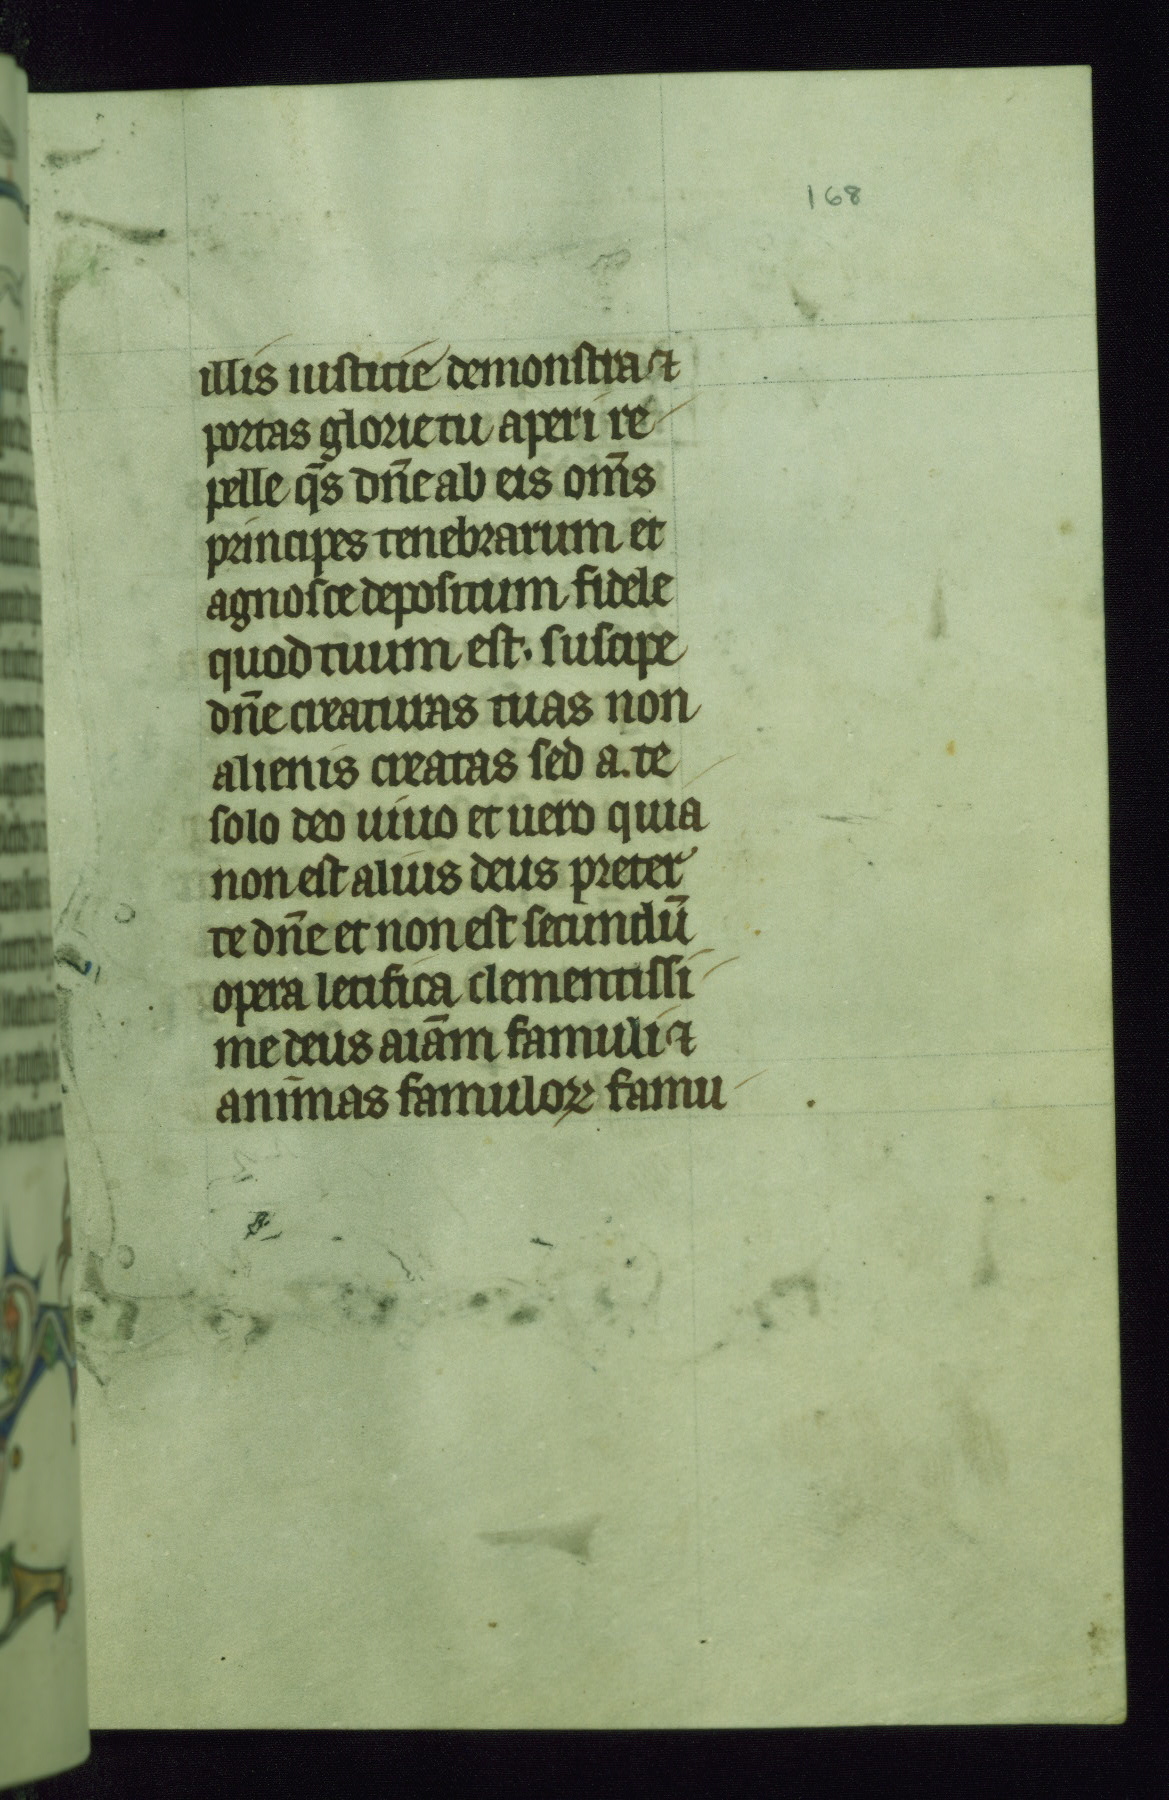 168
illis iusticie demonstra ⁊
portas glorie tu aperi re
pelle q̄s dn̄e ab eis om̄s
principes tenebrarum et
agnosce depositum fidele
quod tuum est. suscipe
dn̄e creaturas tuas non
alienis creatas sed a. te
solo deo uiuo et uero quia
non est alius deus preter
te dn̄e et non est secundū
opera letifica clementissi
me deus aiām famuli ⁊
animas famuloꝝ famu